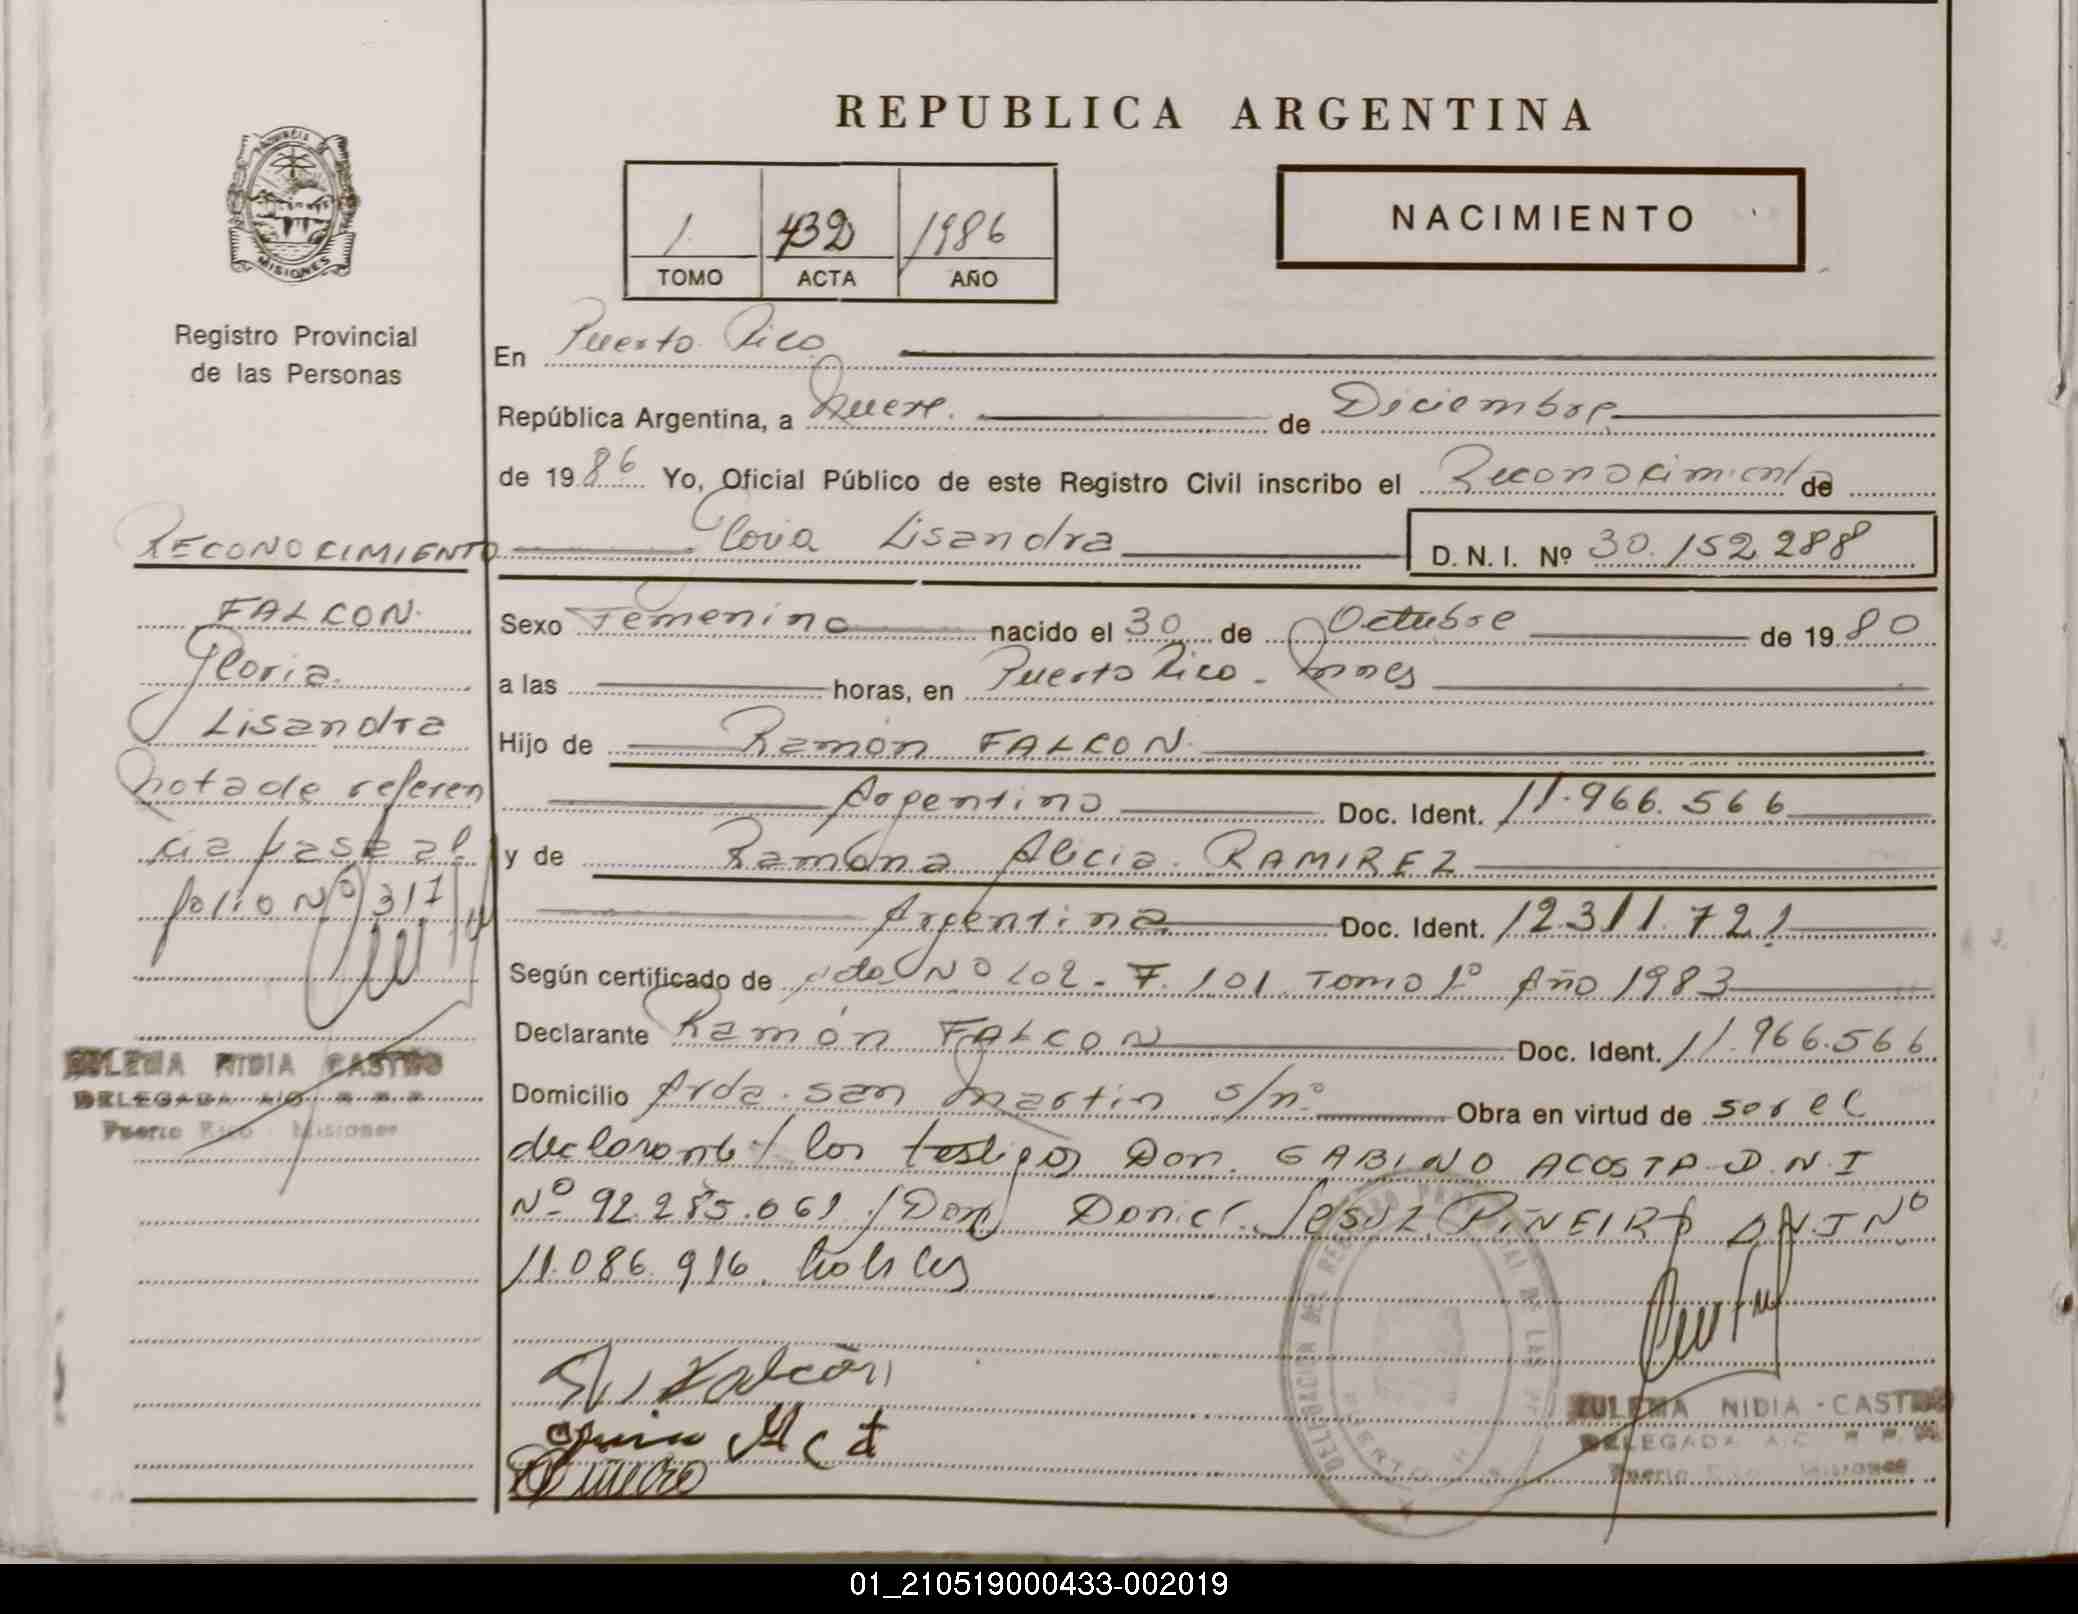 REPUBLICA ARGENTINA
PROVINCIA
MISIONES
1 432 1986
TOMO ACTA AÑO
NACIMIENTO
Registro Provincial
de las Personas
En Puerto Rico
República Argentina, a nueve. de Diciembre
de 1986 Yo, Oficial Público de este Registro Civil inscribo el Reconocimiento de
Gloria Lisandra D. N. I. Nº 30.152.288
Sexo Femenino nacido el 30 de Octubre de 1980
a las horas, en Puerto Rico - Mnes
Hijo de Ramón FALCON.
Argentino Doc. Ident. 11.966.566
y de Ramona Alicia. RAMIREZ
Argentina Doc. Ident. 12.311.721
Según certificado de Nº 102 - F. 101 Tomo 1º Año 1983
Declarante Ramón FALCON Doc. Ident. 11.966.566
Domicilio Avda. San Martin s/nº Obra en virtud de ser el
declarante y los testigos Don. GABINO ACOSTA D.N.I
Nº 92.285.061 y Don Daniel Jesus PIÑEIRO D.N.I Nº
11.086.916. habiles
Falcón
RECONOCIMIENTO
FALCON.
Gloria
Lisandra
nota de referen
cia pase al
folio Nº 317
ZULEMA NIDIA CASTRO
DELEGADA
Puerto Rico Misiones
ZULEMA NIDIA - CASTRO
DELEGADA
Puerto Rico Misiones
01_210519000433-002019